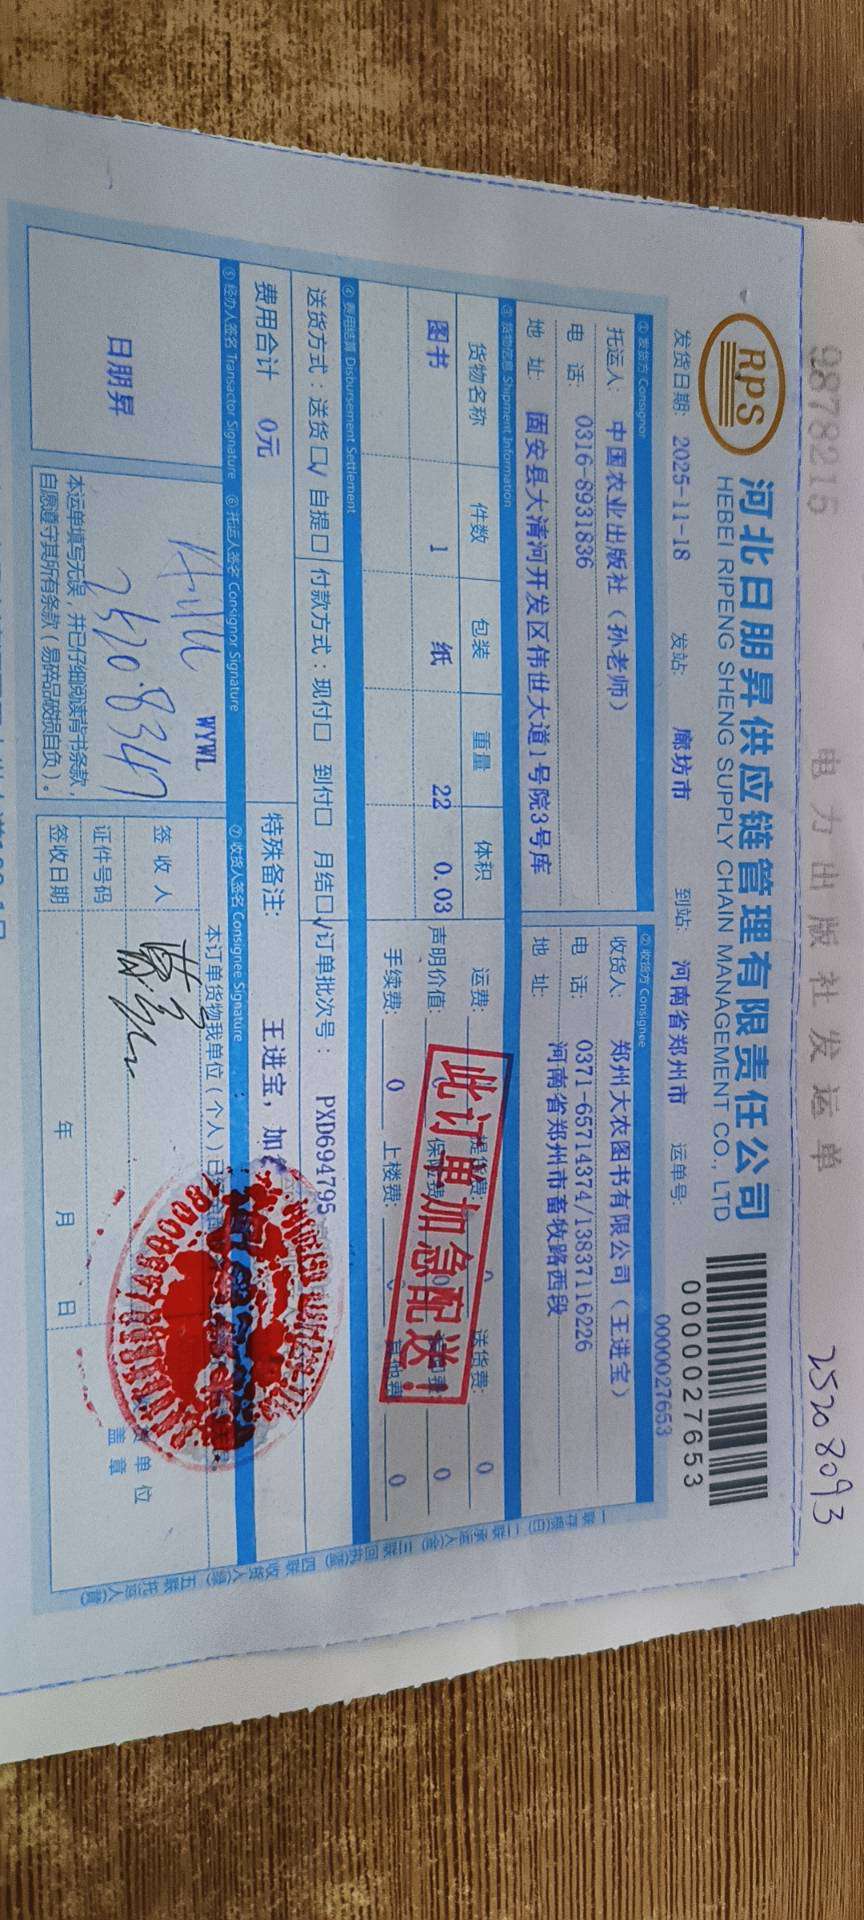 9878215 电力出版社发运单 25208093
RPS
河北日朋昇供应链管理有限责任公司
HEBEI RIPENG SHENG SUPPLY CHAIN MANAGEMENT CO., LTD
0000027653
发货日期: 2025-11-18 发站: 廊坊市 到站: 河南省郑州市 运单号: 0000027653
① 发货方 Consignor ② 收货方 Consignee
托运人: 中国农业出版社（孙老师） 收货人: 郑州大农图书有限公司（王进宝）
电 话: 0316-8931836 电 话: 0371-65714374/13837116226
地 址: 固安县大清河开发区伟世大道1号院3号库 地 址: 河南省郑州市畜牧路西段
③ 货物信息 Shipment Information
货物名称 件数 包装 重量 体积 运费: 提货费: 0 送货费: 0
图书 1 纸 22 0.03 声明价值: 保险费: 0 0
手续费: 0 上楼费: 0 其他费: 0
此订单加急配送!
④ 费用结算 Disbursement Settlement
送货方式: 送货□√ 自提□ 付款方式: 现付□ 到付□ 月结□√ 订单批次号: PXD694795
费用合计 0元 特殊备注: 王进宝, 加
⑤ 经办人签名 Transactor Signature ⑥ 托运人签名 Consignor Signature ⑦ 收货人签名 Consignee Signature
日朋昇
WYWL
2520.8347
本运单填写无误, 并已仔细阅读背书条款,
自愿遵守其所有条款（易碎品破损自负）。
本订单货物我单位（个人）已
签 收 人
证件号码
签收日期 年 月 日
单位
盖章
一联存根(白) 二联承运人(金) 三联回执(蓝) 四联收货人(绿) 五联托运人(黄)